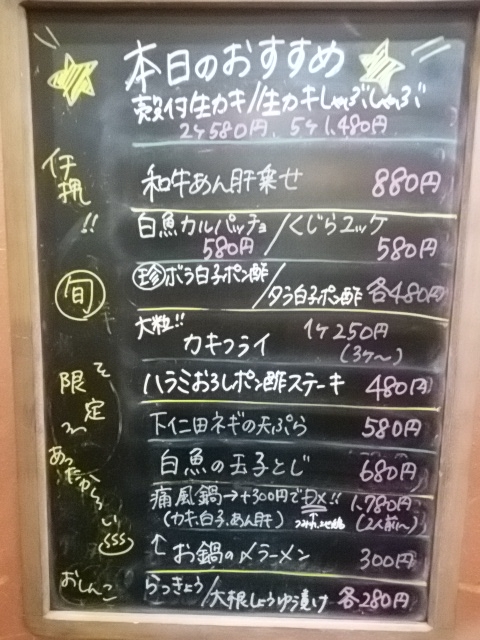 本日のおすすめ
殻付生カキ/生カキしゃぶしゃぶ
2ケ580円、5ケ1,480円
和牛あん肝乗せ 880円
白魚カルパッチョ/くじらユッケ
580円 580円
旬 珍ボラ白子ポン酢/タラ白子ポン酢 各480円
大粒!! カキフライ 1ケ250円
(3ケ〜)
限定 ハラミおろしポン酢ステーキ 480円
下仁田ネギの天ぷら 580円
白魚の玉子とじ 680円
痛風鍋→+300円でDX!! 1,780円
(カキ、白子、あん肝) (2人前〜)
あったか〜い
↑お鍋の〆ラーメン 300円
おしんこ らっきょう/大根しょうゆ漬け 各280円